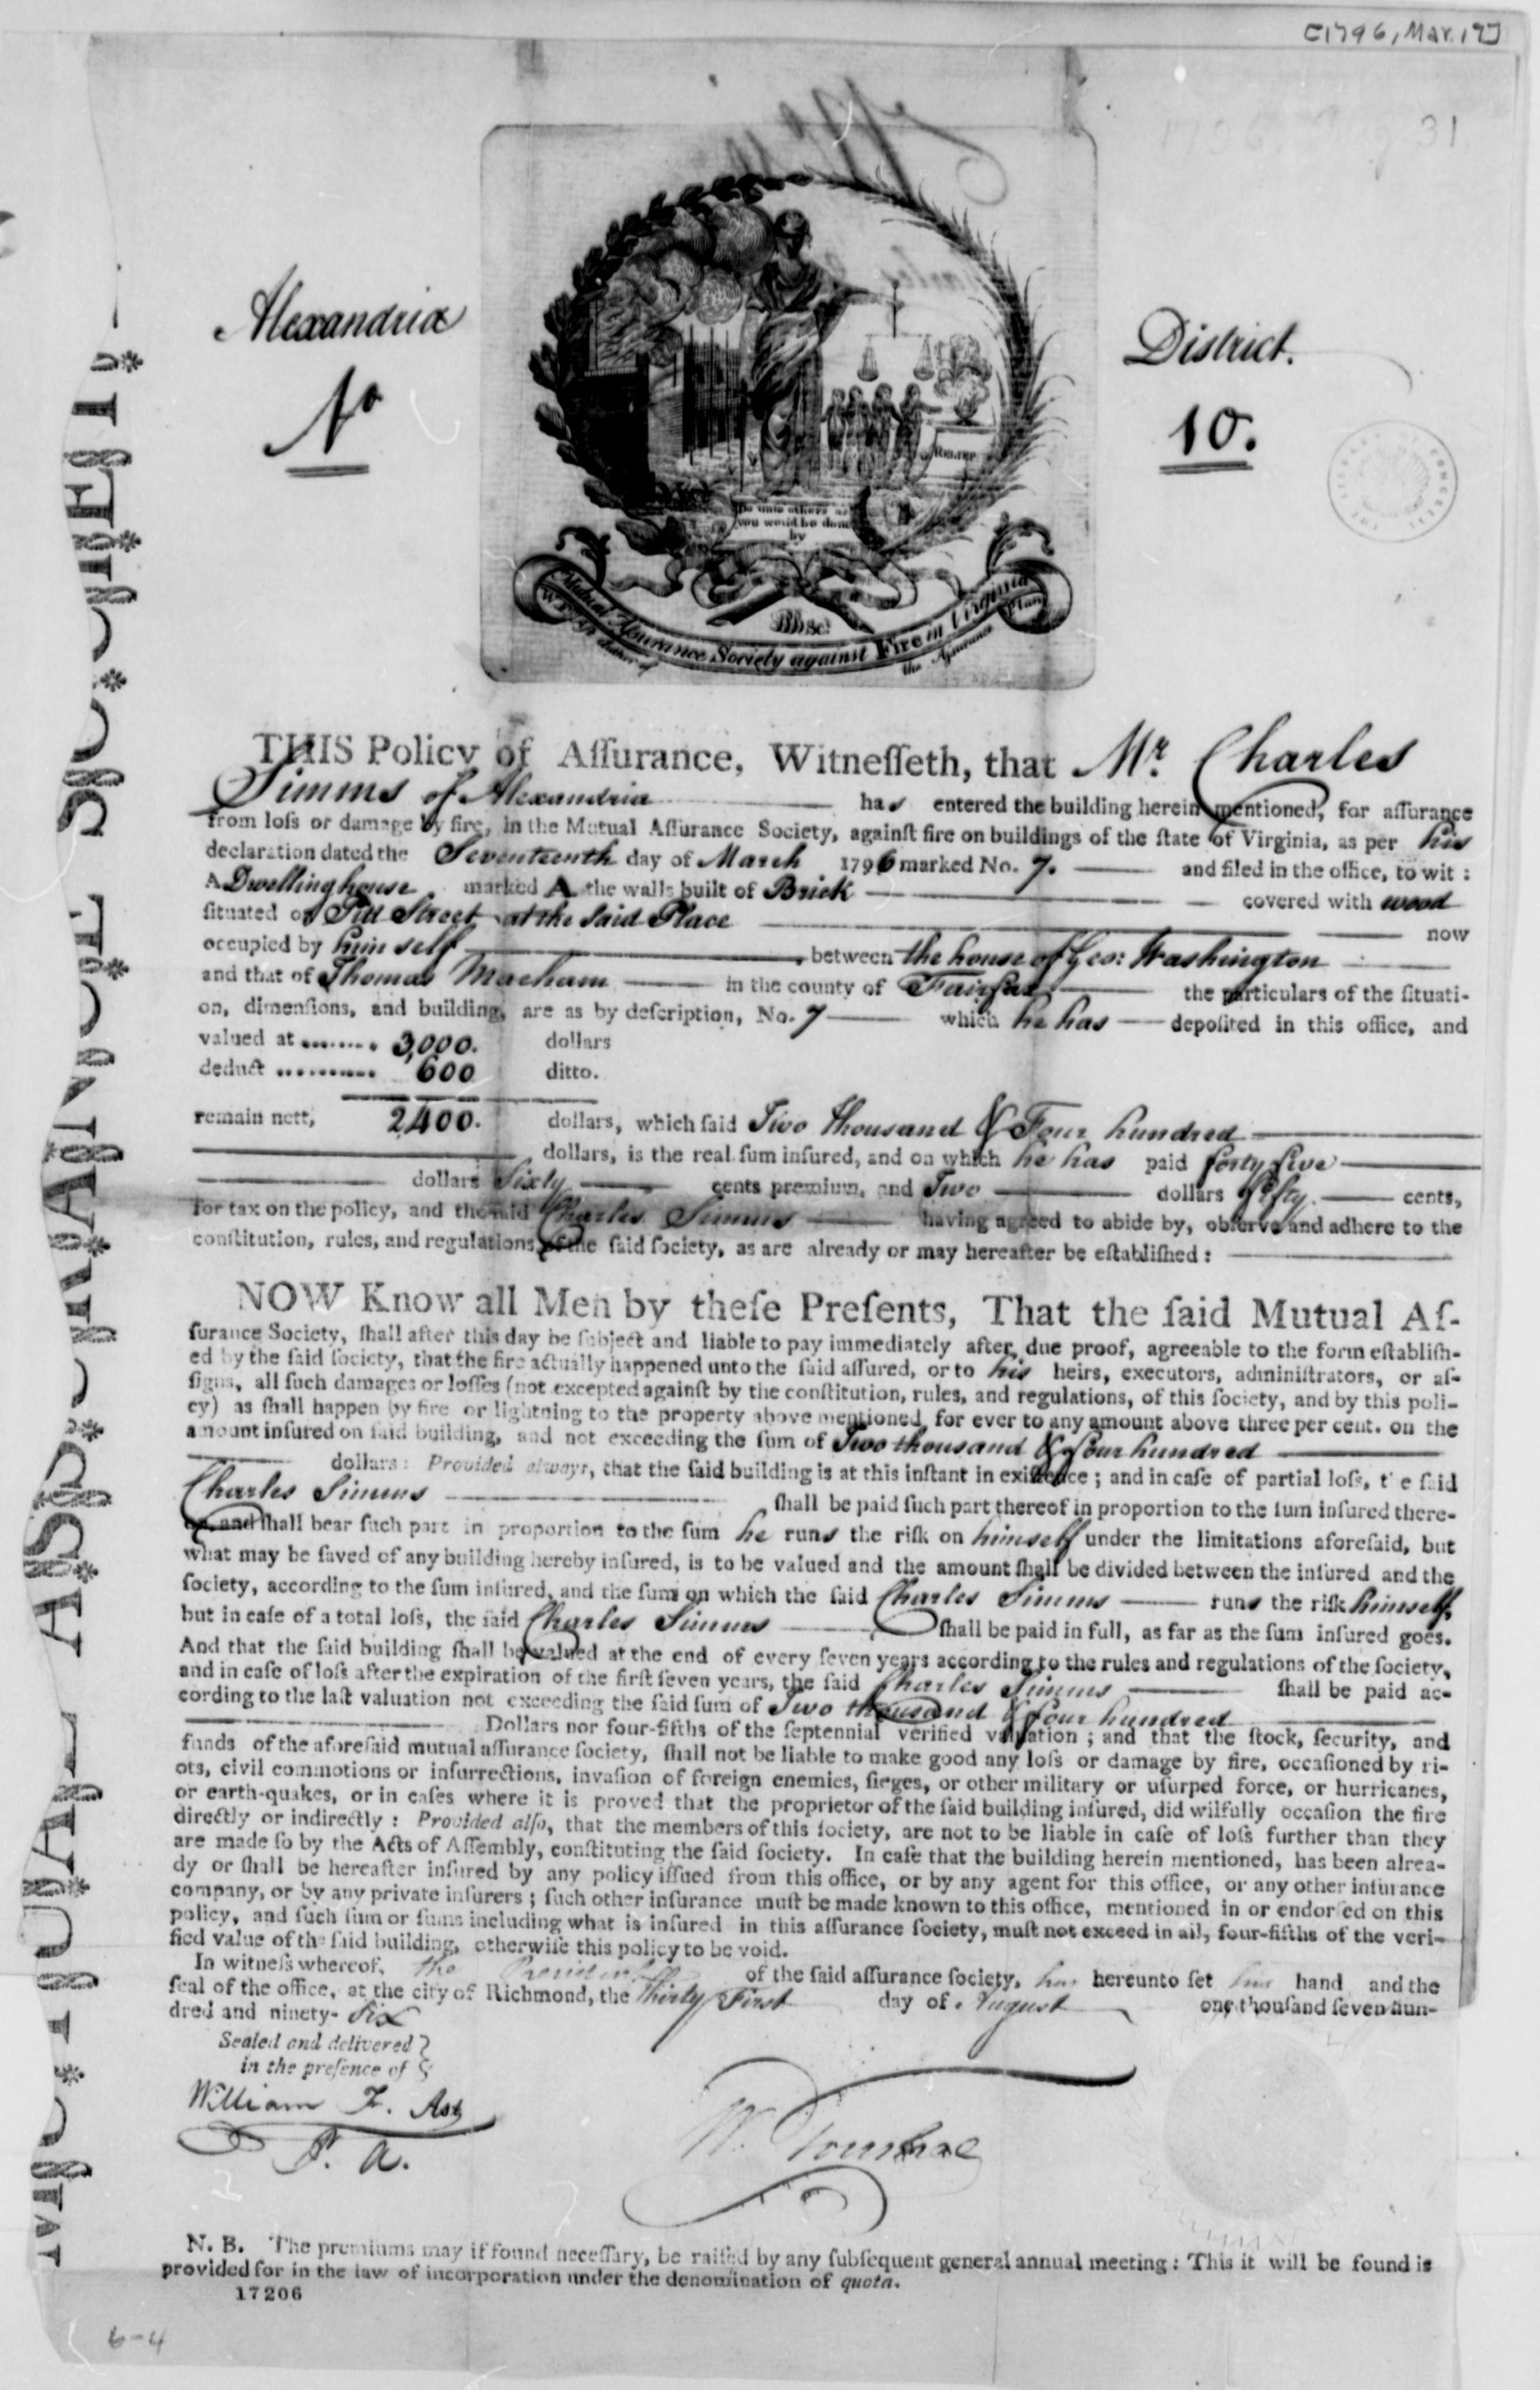 [1796, Mar. 17]
31
Alexandria
District.
No
10.
RELIEF
Do unto others as
you would be done
by
Mutual Assurance Society against Fire in Virginia
W. F. Ast
Plan
the Assurance
THIS Policy of Aſſurance, Witneſſeth, that Mr. Charles
Simms of Alexandria has entered the building herein mentioned, for aſſurance
from loſs or damage by fire, in the Mutual Aſſurance Society, againſt fire on buildings of the ſtate of Virginia, as per his
declaration dated the Seventeenth day of March 1796 marked No. 7. and filed in the office, to wit:
A Dwelling house marked A the walls built of Brick covered with wood
ſituated on Pitt Street at the said Place now
occupied by him self between the house of Geo: Washington
and that of Thomas Macham in the county of Fairfax the particulars of the ſituati-
on, dimenſions, and building, are as by deſcription, No. 7 which he has depoſited in this office, and
valued at ........ 3,000. dollars
deduct .......... 600 ditto.
remain nett, 2,400. dollars, which ſaid Two thousand & Four hundred
dollars, is the real ſum inſured, and on which he has paid forty five
dollars Sixty cents premium, and Two dollars fifty cents,
for tax on the policy, and the ſaid Charles Simms having agreed to abide by, obſerve and adhere to the
conſtitution, rules, and regulations of the ſaid ſociety, as are already or may hereafter be eſtabliſhed:
NOW Know all Men by theſe Preſents, That the ſaid Mutual Aſ-
ſurance Society, ſhall after this day be ſubject and liable to pay immediately after due proof, agreeable to the form eſtabliſh-
ed by the ſaid ſociety, that the fire actually happened unto the ſaid aſſured, or to his heirs, executors, adminiſtrators, or aſ-
ſigns, all ſuch damages or loſſes (not excepted againſt by the conſtitution, rules, and regulations, of this ſociety, and by this poli-
cy) as ſhall happen by fire or lightning to the property above mentioned for ever to any amount above three per cent. on the
amount inſured on ſaid building, and not exceeding the ſum of Two thousand & four hundred
dollars: Provided always, that the ſaid building is at this inſtant in exiſtence; and in caſe of partial loſs, the ſaid
Charles Simms ſhall be paid ſuch part thereof in proportion to the ſum inſured there-
on, and ſhall bear ſuch part in proportion to the ſum he runs the riſk on himself under the limitations aforeſaid, but
what may be ſaved of any building hereby inſured, is to be valued and the amount ſhall be divided between the inſured and the
ſociety, according to the ſum inſured, and the ſum on which the ſaid Charles Simms runs the riſk himself,
but in caſe of a total loſs, the ſaid Charles Simms ſhall be paid in full, as far as the ſum inſured goes.
And that the ſaid building ſhall be valued at the end of every ſeven years according to the rules and regulations of the ſociety,
and in caſe of loſs after the expiration of the firſt ſeven years, the ſaid Charles Simms ſhall be paid ac-
cording to the laſt valuation not exceeding the ſaid ſum of Two thousand & four hundred
Dollars nor four-fifths of the ſeptennial verified valuation; and that the ſtock, ſecurity, and
funds of the aforeſaid mutual aſſurance ſociety, ſhall not be liable to make good any loſs or damage by fire, occaſioned by ri-
ots, civil commotions or inſurrections, invaſion of foreign enemies, ſieges, or other military or uſurped force, or hurricanes,
or earth-quakes, or in caſes where it is proved that the proprietor of the ſaid building inſured, did wilfully occaſion the fire
directly or indirectly: Provided alſo, that the members of this ſociety, are not to be liable in caſe of loſs further than they
are made ſo by the Acts of Aſſembly, conſtituting the ſaid ſociety. In caſe that the building herein mentioned, has been alrea-
dy or ſhall be hereafter inſured by any policy iſſued from this office, or by any agent for this office, or any other inſurance
company, or by any private inſurers; ſuch other inſurance muſt be made known to this office, mentioned in or endorſed on this
policy, and ſuch ſum or ſums including what is inſured in this aſſurance ſociety, muſt not exceed in all, four-fifths of the veri-
fied value of the ſaid building, otherwiſe this policy to be void.
In witneſs whereof, the President of the ſaid aſſurance ſociety, has hereunto ſet his hand and the
ſeal of the office, at the city of Richmond, the Thirty First day of August one thouſand ſeven hun-
dred and ninety- Six
Sealed and delivered
in the preſence of
William F. Ast
P. A.
W.
N. B. The premiums may if found neceſſary, be raiſed by any ſubſequent general annual meeting: This it will be found is
provided for in the law of incorporation under the denomination of quota.
17206
6-4
MUTUAL ASSURANCE SOCIETY